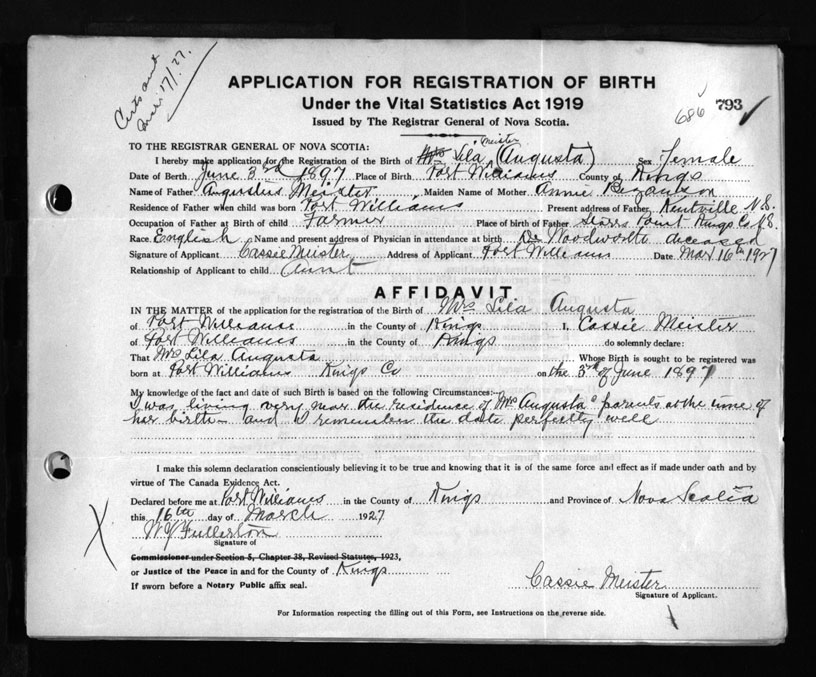 Certs sent
Mar 17/27.
APPLICATION FOR REGISTRATION OF BIRTH
Under the Vital Statistics Act 1919
Issued by The Registrar General of Nova Scotia.
686 793
TO THE REGISTRAR GENERAL OF NOVA SCOTIA:
Meister
I hereby make application for the Registration of the Birth of Mrs Lila (Augusta) Sex Female
Date of Birth June 3rd 1897 Place of Birth Port Williams County of Kings
Name of Father Augustus Meister Maiden Name of Mother Annie Bezanson
Residence of Father when child was born Port Williams Present address of Father Kentville N.S.
Occupation of Father at Birth of child Farmer Place of birth of Father Starrs Point Kings Co N.S.
Race. English Name and present address of Physician in attendance at birth Dr Woodworth deceased
Signature of Applicant Cassie Meister Address of Applicant Port Williams Date Mar 16th 1927
Relationship of Applicant to child Aunt
AFFIDAVIT
IN THE MATTER of the application for the registration of the Birth of Mrs Lila Augusta
of Port Williams in the County of Kings I, Cassie Meister
of Port Williams in the County of Kings do solemnly declare:
That Mrs Lila Augusta Whose Birth is sought to be registered was
born at Port Williams Kings Co on the 3rd of June 1897
My knowledge of the fact and date of such Birth is based on the following Circumstances:—
I was living very near the residence of Mrs Augusta's parents at the time of
her birth – and I remember the date perfectly well
I make this solemn declaration conscientiously believing it to be true and knowing that it is of the same force and effect as if made under oath and by
virtue of The Canada Evidence Act.
Declared before me at Port Williams in the County of Kings and Province of Nova Scotia
this 16th day of March 1927
W Y Fullerton
Signature of
Commissioner under Section 5, Chapter 38, Revised Statutes, 1923,
or Justice of the Peace in and for the County of Kings
If sworn before a Notary Public affix seal.
Cassie Meister
Signature of Applicant.
For Information respecting the filling out of this Form, see Instructions on the reverse side.